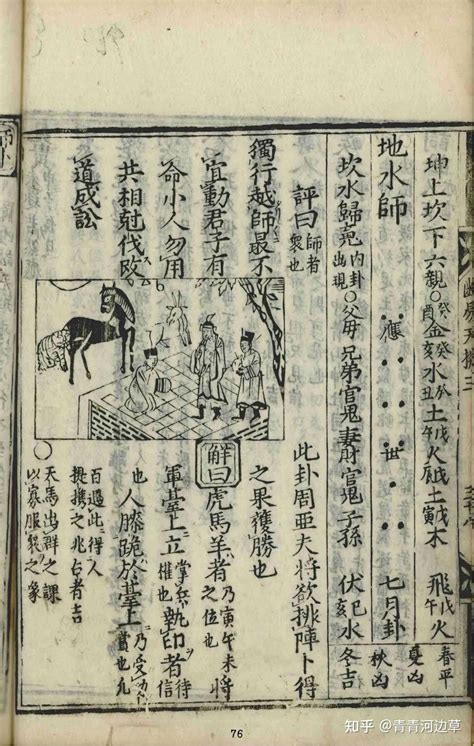 坤上坎下六親〇癸酉金癸亥水癸丑土戊午火戊辰土戊寅木 飛戊午火 春平 夏凶
地水師 應 世 七月卦 秋凶
坎水歸䰟 內卦出現 〇父母兄弟官鬼妻財官鬼子孫 伏己亥水 冬吉
評曰 師者衆也 此卦周亞夫將欲排陣卜得
獨行越師最不 之果獲勝也
宜動君子有
命小人勿用
共相尅伐改
道成訟
解曰虎馬羊者 乃寅午未之位也 將
軍臺上立 掌兵權也 執印者 待信
也人膝跪於臺上 乃受功賞也 凡
百遇此得人
提携之兆占者吉
〇天馬出群之課
以寡服衆之象
76
知乎 @青青河边草